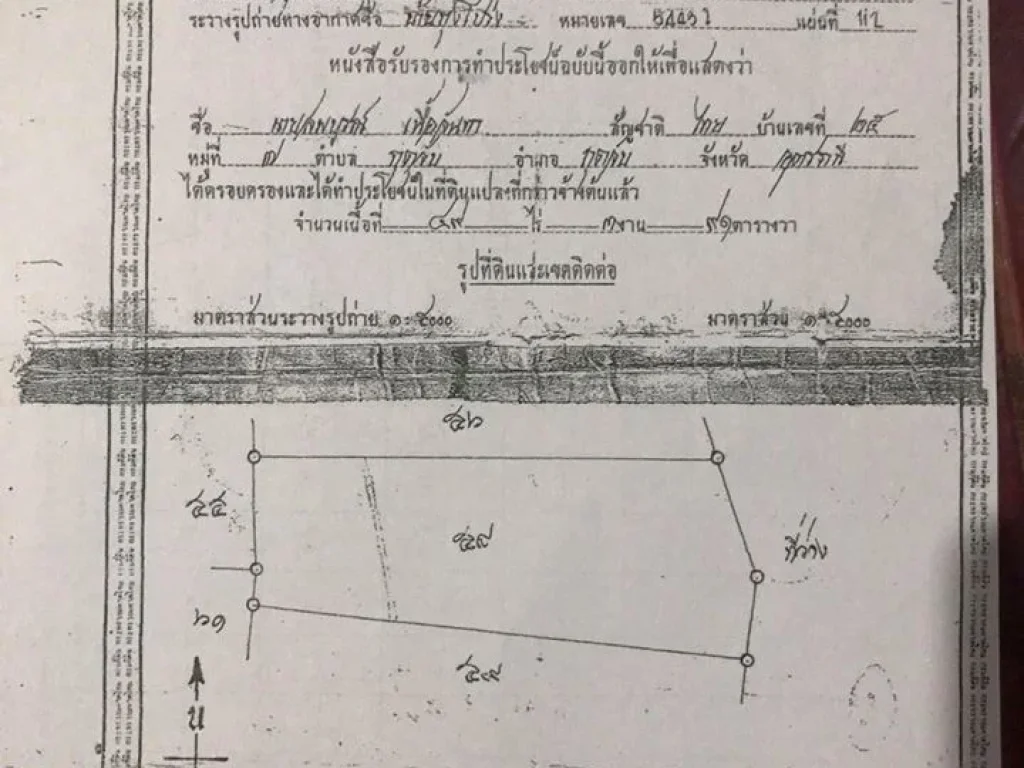 ระวางรูปถ่ายทางอากาศชื่อ หมายเลข แผ่นที่ 112
หนังสือรับรองการทำประโยชน์ฉบับนี้ออกให้เพื่อแสดงว่า
ชื่อ สัญชาติ ไทย บ้านเลขที่ ๒๕
หมู่ที่ ๗ ตำบล กุดจับ อำเภอ กุดจับ จังหวัด อุดรธานี
ได้ครอบครองและได้ทำประโยชน์ในที่ดินแปลงที่กล่าวข้างต้นแล้ว
จำนวนเนื้อที่ ๔๙ ไร่ ๓ งาน ๙๑ ตารางวา
รูปที่ดินและเขตติดต่อ
มาตราส่วนระวางรูปถ่าย ๑:๕๐๐๐ มาตราส่วน ๑:๕๐๐๐
๕๖
๕๕
๕๘
ที่ว่าง
๖๑
๕๙
น